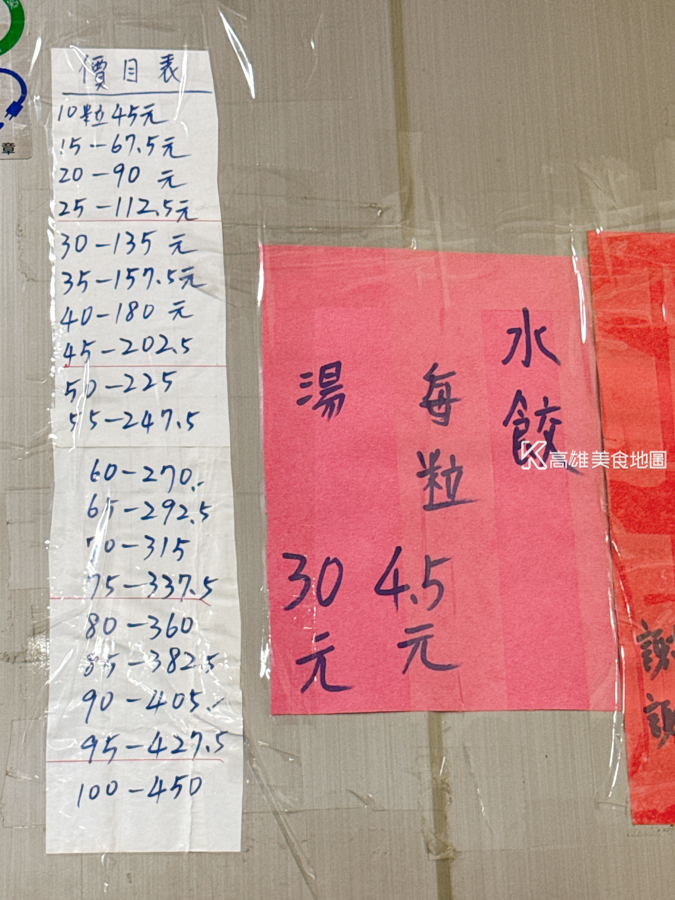 價目表
10粒45元
15-67.5元
20-90 元
25-112.5元
30-135 元
35-157.5元
40-180 元
45-202.5
50-225
55-247.5
60-270.-
65-292.5
70-315
75-337.5
80-360
85-382.5
90-405.-
95-427.5
100-450
水餃
每粒4.5元
湯 30元
高雄美食地圖
章